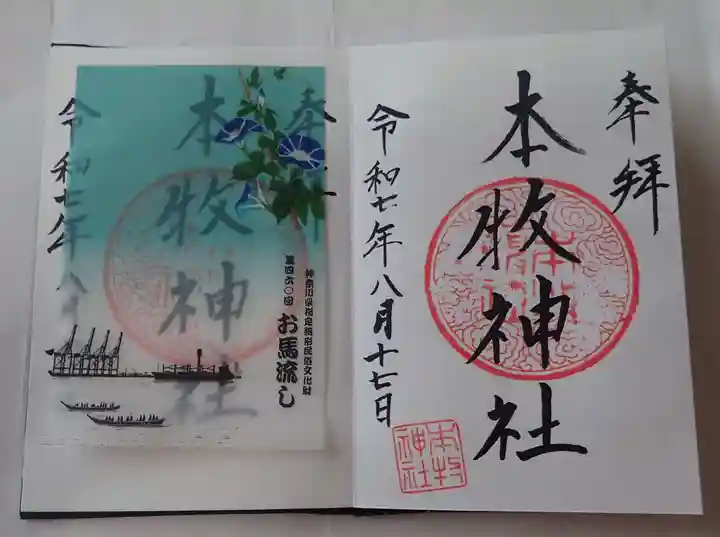 奉拝
本牧神社
令和七年八月十七日
本牧
神社
奉拝
本牧神社
令和七年八月
神奈川県指定無形民俗文化財
第四六〇回
お馬流し